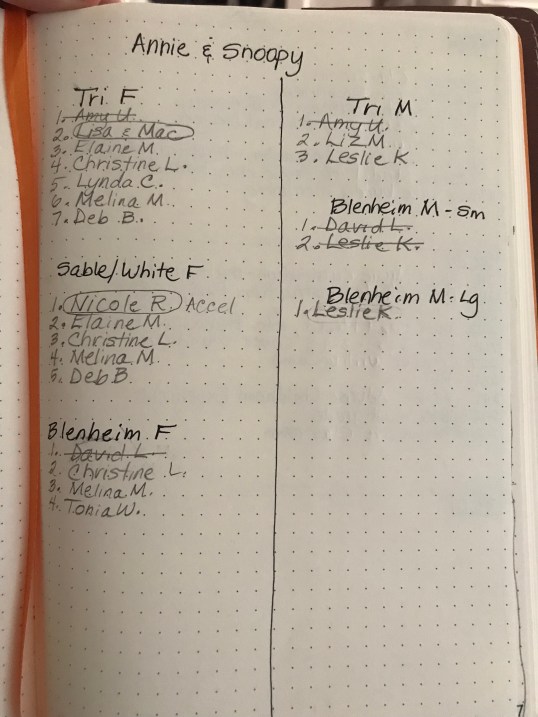 Annie & Snoopy
Tri F
1. Amy U.
2. Lisa & Mac
3. Elaine M.
4. Christine L.
5. Lynda C.
6. Melina M.
7. Deb B.
Sable/White F
1. Nicole R. Accel
2. Elaine M.
3. Christine L.
4. Melina M.
5. Deb B.
Blenheim F
1. David L.
2. Christine L.
3. Melina M.
4. Tonia W.
Tri M
1. Amy U.
2. Liz M.
3. Leslie K
Blenheim M-Sm
1. David L.
2. Leslie K.
Blenheim M-Lg
1. Leslie K.
7